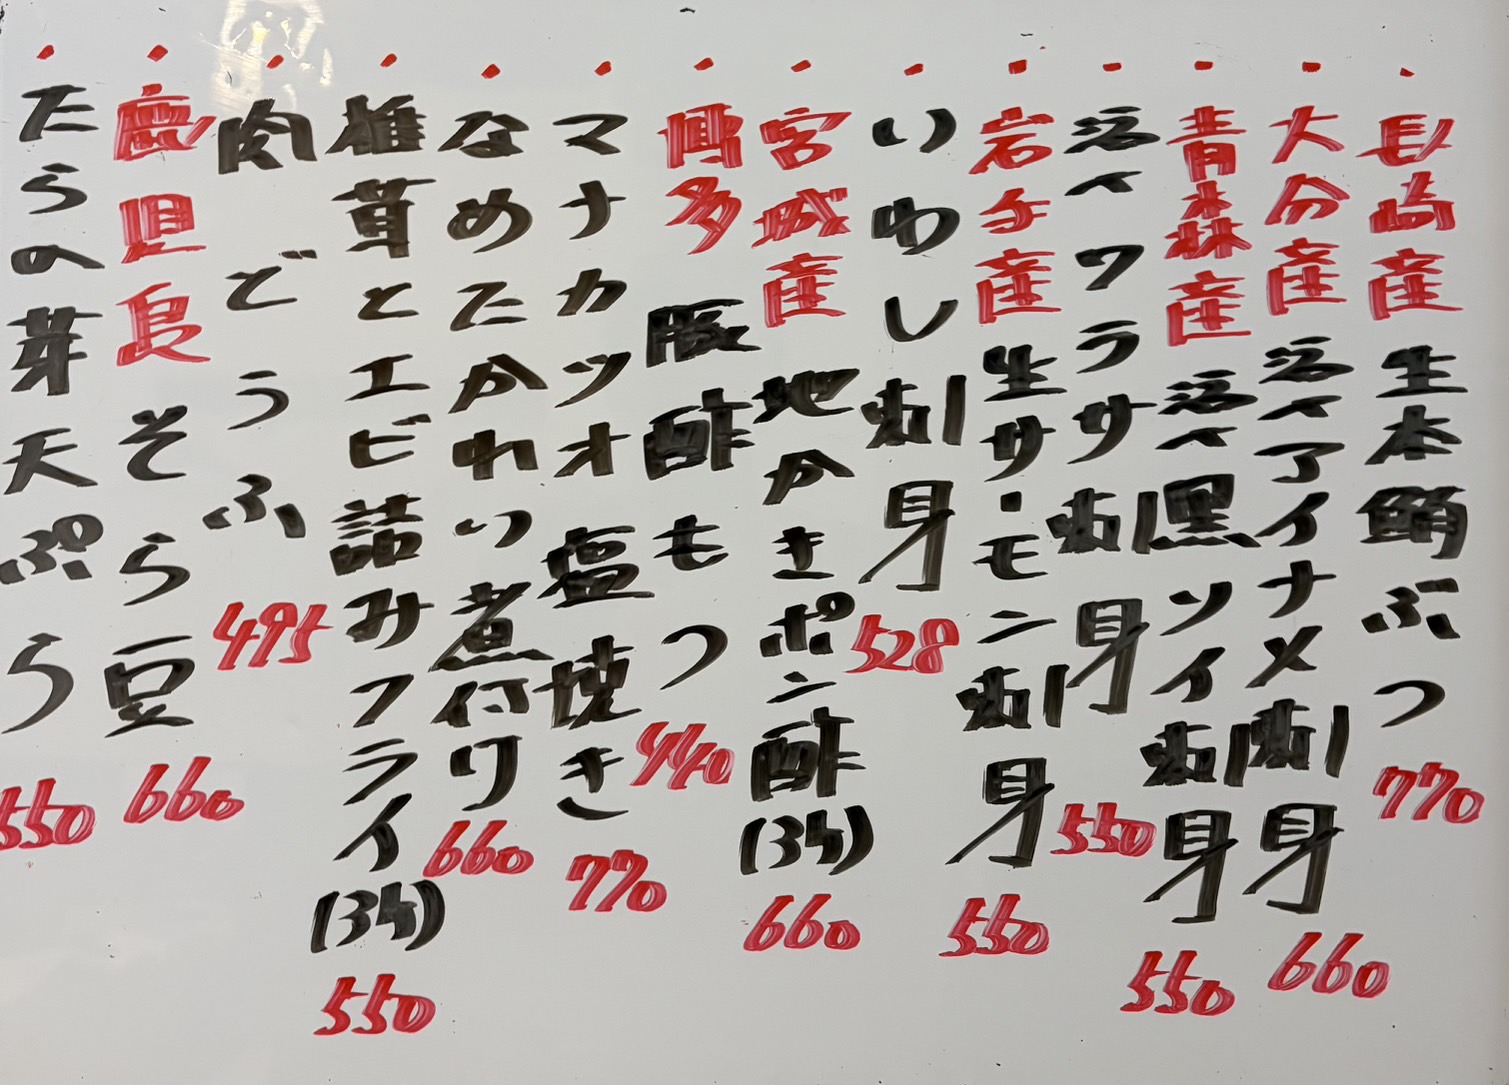 ・長崎産 生本鮪ぶつ 770
・大分産 活〆アイナメ刺身 660
・青森産 活〆黒ソイ刺身 550
・活〆ワラサ刺身 550
・岩手産 生サ・モン刺身 550
・いわし刺身 528
・宮城産 地かきポン酢(3ケ) 660
・博多 豚酢もつ 440
・マナカツオ 塩焼き 770
・なめたかれい煮付け 660
・椎茸とエビ詰みフライ(3ケ) 550
・肉どうふ 495
・鹿児島 そら豆 660
・たらの芽天ぷら 550